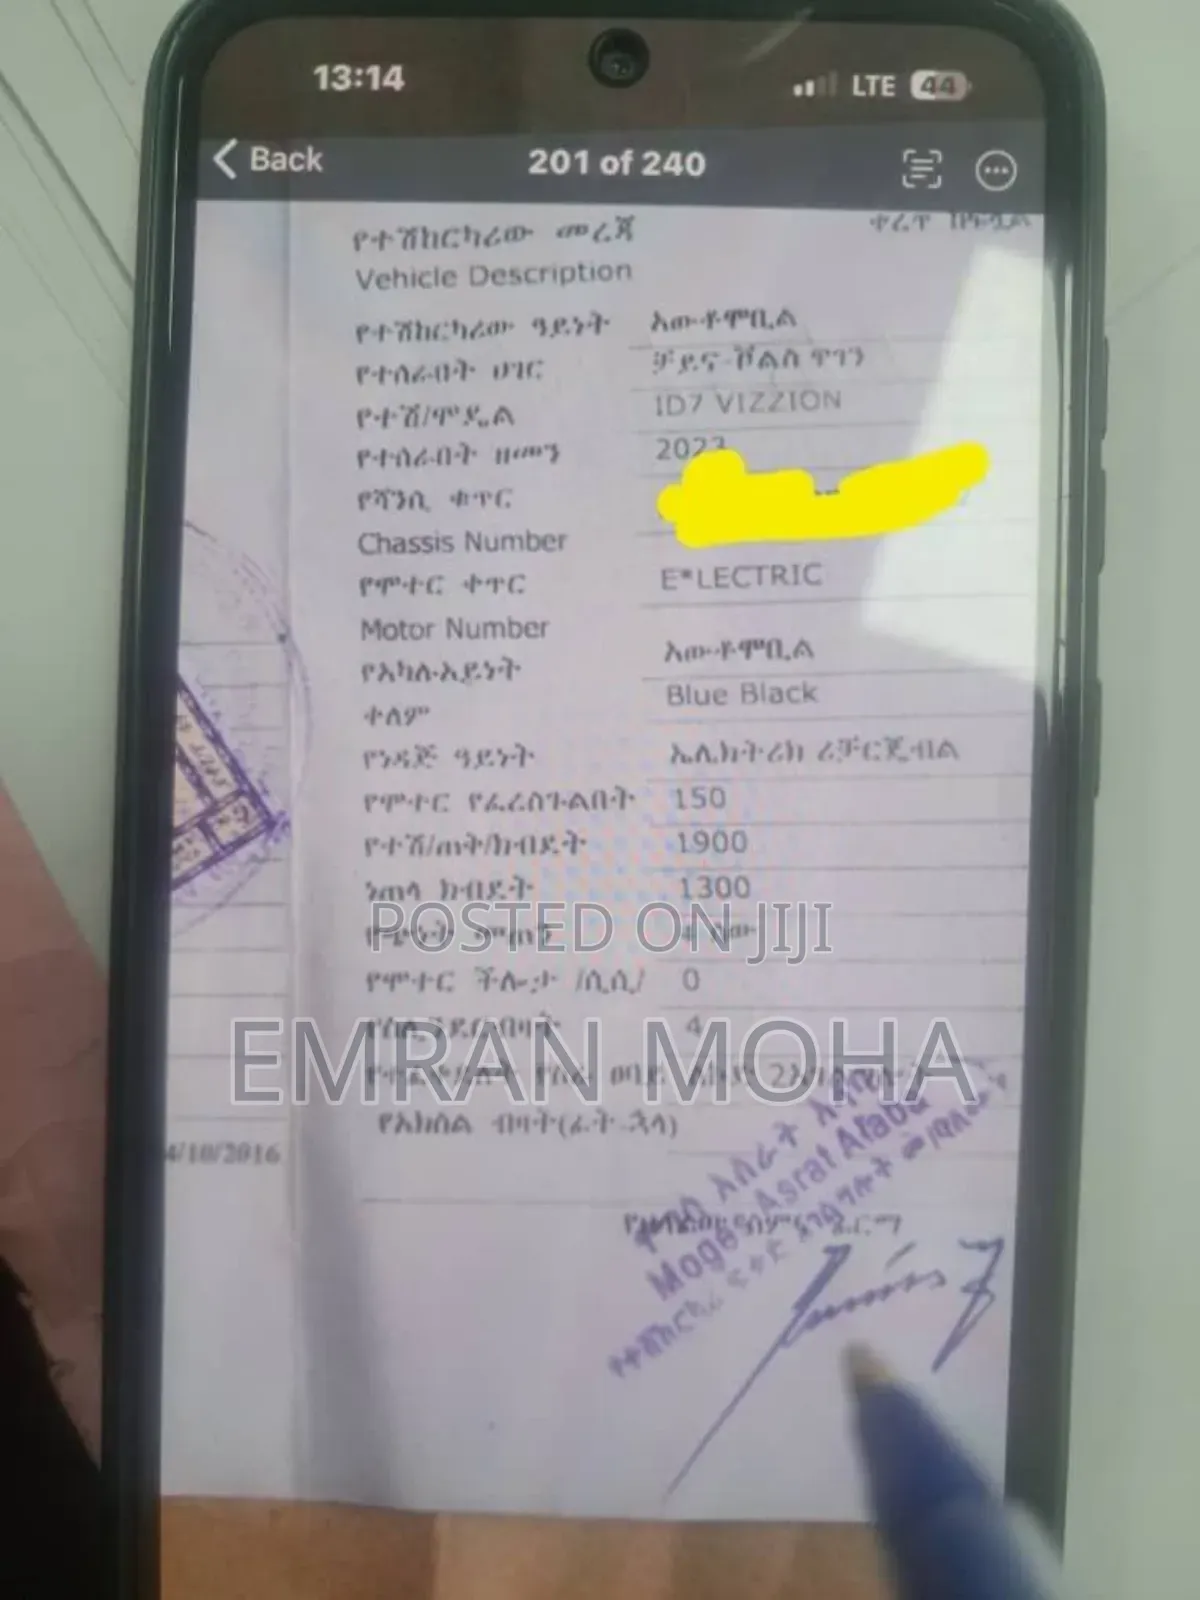 13:14
LTE 44
Back
201 of 240
የተሽከርካሪው መረጃ
Vehicle Description
የተሽከርካሪው ዓይነት አውቶሞቢል
የተሰራበት ሀገር ቻይና-ቮልስ ዋገን
የተሽ/ሞዴል ID7 VIZZION
የተሰራበት ዘመን 2023
የሻንሲ ቁጥር
Chassis Number
የሞተር ቀጥር E*LECTRIC
Motor Number
የአካሉአይነት አውቶሞቢል
ቀለም Blue Black
የነዳጅ ዓይነት ኤሊክትሪክ ሪቻርጀብል
የሞተር የፈረስጉልበት 150
የተሽ/ጠቅ/ክብደት 1900
ነጠላ ክብደት 1300
የጭነት መጠን 4 ሰው
POSTED ON JIJI
የሞተር ችሎታ /ሲሲ/ 0
የሲሊንደር ብዛት 4
EMRAN MOHA
የአክሰል ብዛት(ፊት-ኋላ)
4/10/2016
Asrat